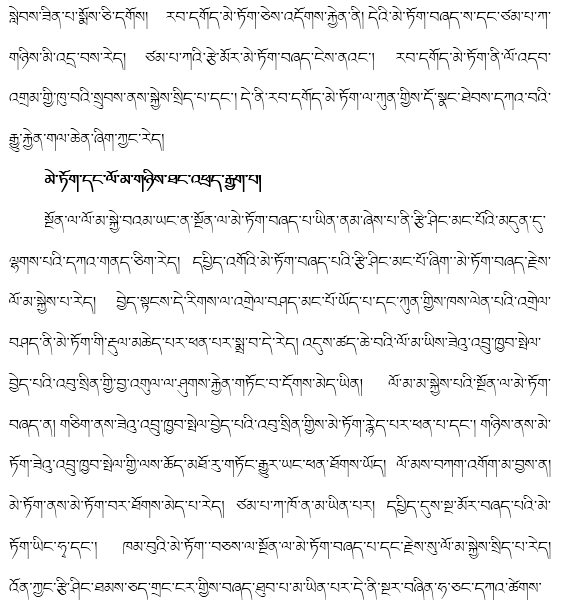 སླེབས་ཟིན་པ་སྨོས་ཅི་དགོས། རབ་དགོད་མེ་ཏོག་ཅེས་འདོགས་རྐྱེན་ནི། དེའི་མེ་ཏོག་བཞད་ས་དང་ཙམ་པ་ཀ་
གཉིས་མི་འདྲ་བས་རེད། ཙམ་པ་ཀའི་རྩེ་མོར་མེ་ཏོག་བཞད་ངེས་ནའང་། རབ་དགོད་མེ་ཏོག་ནི་ལོ་འདབ་
འགྲམ་གྱི་ཁུ་བའི་སྲུབས་ནས་སྐྱེས་སྲིད་པ་དང་། དེ་ནི་རབ་དགོད་མེ་ཏོག་ལ་ཀུན་གྱིས་དོ་སྣང་ཐེབས་དཀའ་བའི་
རྒྱུ་རྐྱེན་གལ་ཆེན་ཞིག་ཀྱང་རེད།
མེ་ཏོག་དང་ལོ་མ་གཉིས་ཐང་འཕྲད་རྒྱག་པ།
སྔོན་ལ་ལོ་མ་སྐྱེ་བའམ་ཡང་ན་སྔོན་ལ་མེ་ཏོག་བཞད་པ་ཡིན་ནམ་ཞེས་པ་ནི་རྩི་ཤིང་མང་པོའི་མདུན་དུ་
ལྷགས་པའི་དཀའ་གནད་ཅིག་རེད། དཔྱིད་འགོའི་མེ་ཏོག་བཞད་པའི་རྩི་ཤིང་མང་པོ་ཞིག་མེ་ཏོག་བཞད་རྗེས་
ལོ་མ་སྐྱེས་པ་རེད། བྱེད་སྟངས་དེ་རིགས་ལ་འགྲེལ་བཤད་མང་པོ་ཡོད་པ་དང་ཀུན་གྱིས་ཁས་ལེན་པའི་འགྲེལ་
བཤད་ནི་མེ་ཏོག་གི་རྡུལ་མཆེད་པར་ཕན་པར་སྨྲ་བ་དེ་རེད། འདུས་ཚད་ཆེ་བའི་ལོ་མ་ཡིས་ཟེའུ་འབྲུ་ཁྱབ་སྤེལ་
བྱེད་པའི་འབུ་སྲིན་གྱི་བྱ་འགུལ་ལ་ཤུགས་རྐྱེན་གཏོང་བ་དོགས་མེད་ཡིན། ལོ་མ་མ་སྐྱེས་པའི་སྔོན་ལ་མེ་ཏོག་
བཞད་ན། གཅིག་ནས་ཟེའུ་འབྲུ་ཁྱབ་སྤེལ་བྱེད་པའི་འབུ་སྲིན་གྱིས་མེ་ཏོག་རྙེད་པར་ཕན་པ་དང་། གཉིས་ནས་མེ་
ཏོག་ཟེའུ་འབྲུ་ཁྱབ་སྤེལ་གྱི་ལས་ཆོད་མཐོ་རུ་གཏོང་རྒྱུར་ཡང་ཕན་ཐོགས་ཡོད། ལོ་མས་བཀག་འགོག་མ་བྱས་ན།
མེ་ཏོག་ནས་མེ་ཏོག་བར་ཐོགས་མེད་པ་རེད། ཙམ་པ་ཀ་ཁོ་ན་མ་ཡིན་པར། དཔྱིད་དུས་སྔ་མོར་བཞད་པའི་མེ་
ཏོག་ཡིང་ཧྭ་དང་། ཁམ་བུའི་མེ་ཏོག་བཅས་ལ་སྔོན་ལ་མེ་ཏོག་བཞད་པ་དང་རྗེས་སུ་ལོ་མ་སྐྱེས་སྲིད་པ་རེད།
འོན་ཀྱང་རྩི་ཤིང་ཐམས་ཅད་གྲང་ངར་གྱིས་བཞད་ཐུབ་པ་མ་ཡིན་པར་དེ་ནི་སྔར་བཞིན་ཧ་ཅང་དཀའ་ཚེགས་